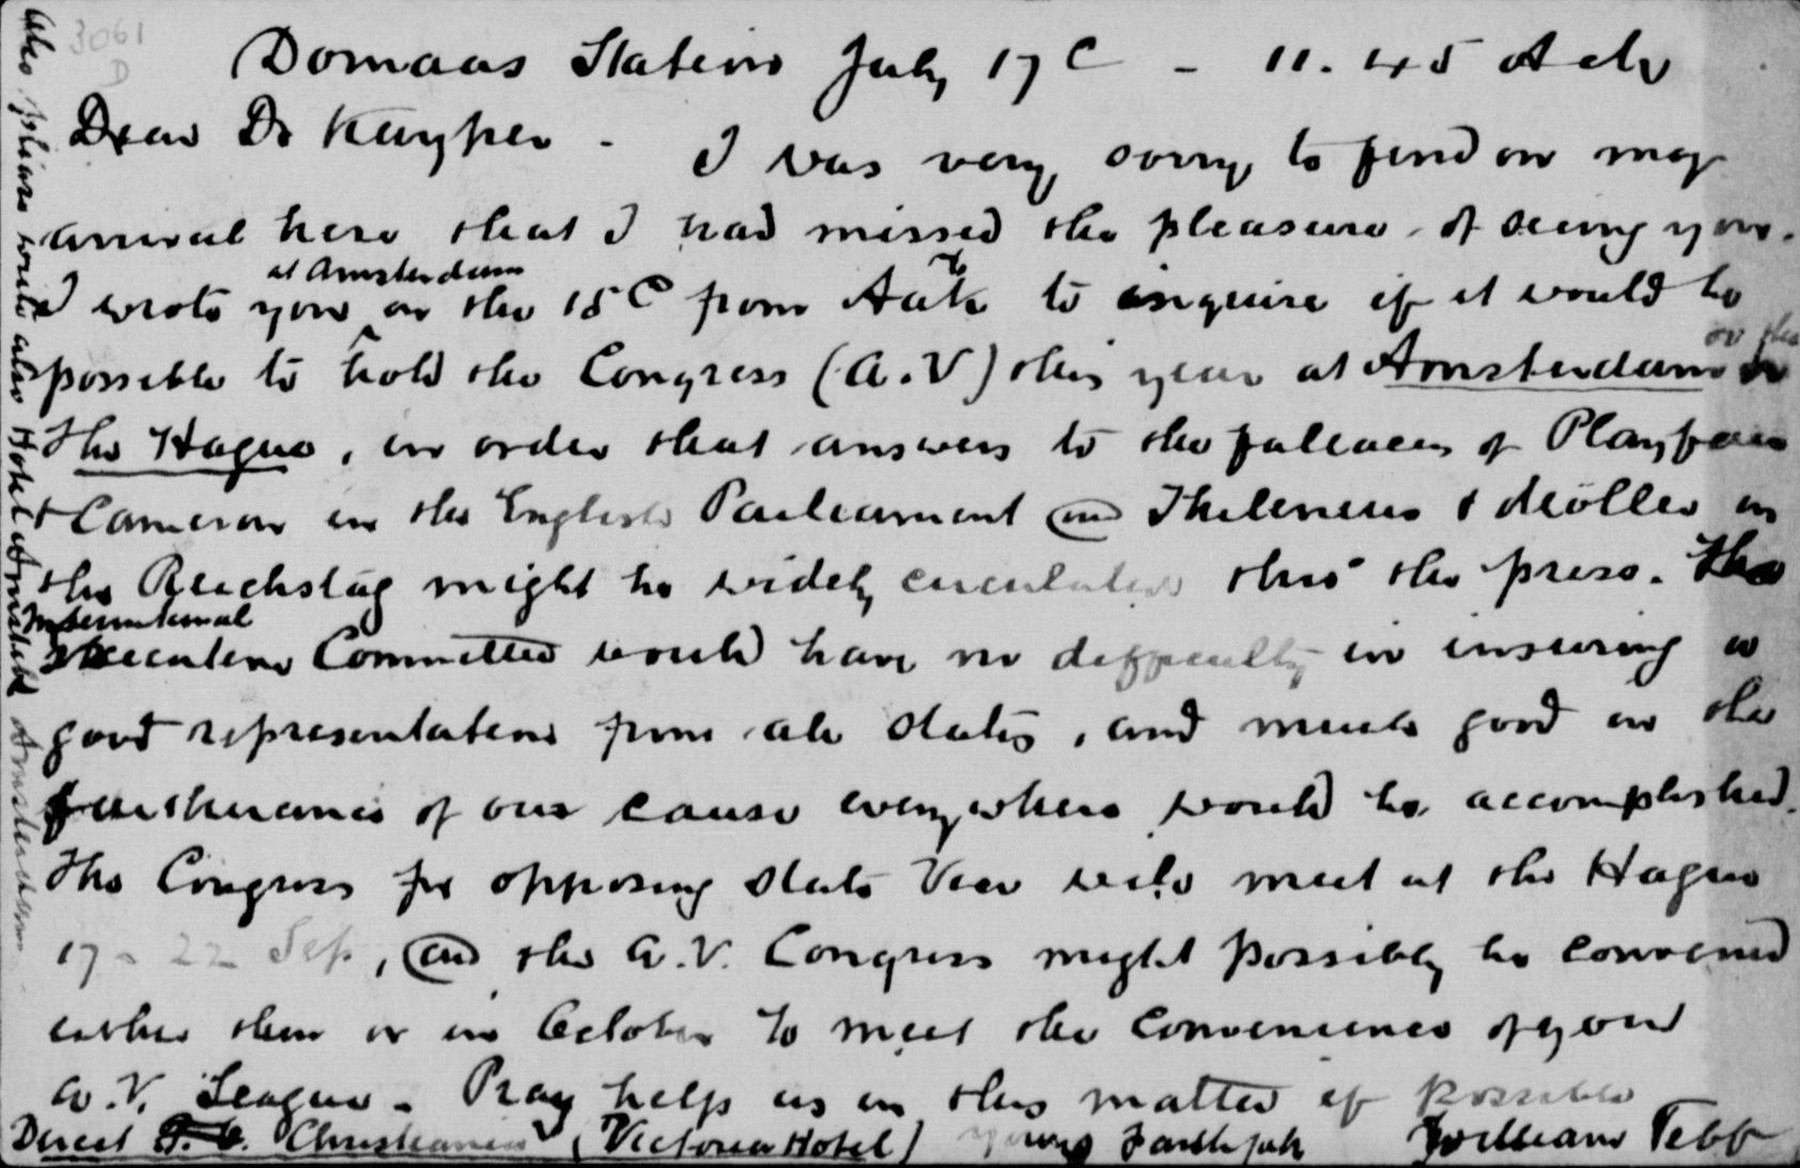 3061
D
Domaas Station July 17th - 11.45 AM
Dear Dr Kuyper - I was very sorry to find on my
arrival here that I had missed the pleasure of seeing you.
at Amsterdam
I wrote you on the 15th from Aak to inquire if it would be
on the
possible to hold the Congress (A.V) this year at Amsterdam or
the Hague, in order that answers to the fallacies of Playfair
& Cameron in the English Parliament and Thilenius & Möller in
the Reichstag might be widely circulated thro' the press. The
International
Executive Committee would have no difficulty in insuring a
good representation from all States, and much good in the
furtherance of our cause everywhere would be accomplished.
The Congress for opposing State Vice will meet at the Hague
17-22 Sep, and the A.V. Congress might possibly be convened
either then or in October to meet the convenience of your
A.V. League - Pray help us in this matter if possible
Direct Christiania (Victoria Hotel) yours faithfully William Tebb
also please write also Hotel Amsterdam